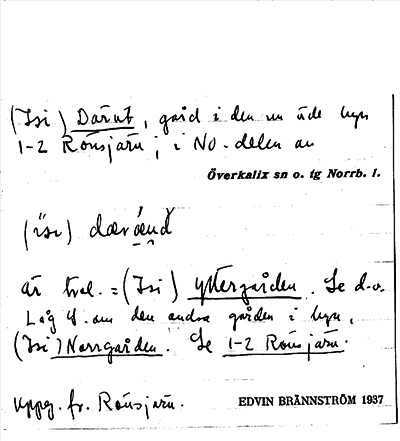 (Isi) Därut, gård i den nu öde byn
1-2 Rönsjärn; i NO-delen av
Överkalix sn o. tg Norrb. l.
(isi)
är tvel. = (Isi) Yttergården. Se d.o.
Låg Y. om den andra gården i byn,
(Isi) Norrgården. Se 1-2 Rönsjärn.
Uppg. fr. Rönsjärn.
EDVIN BRÄNNSTRÖM 1937